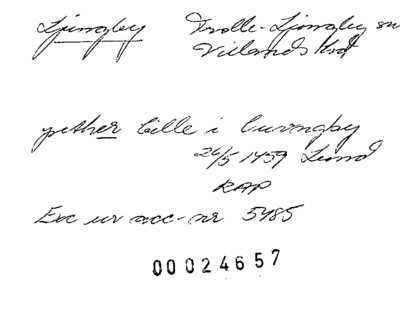 Ljungby Trolle-Ljungby sn
Villands hd
pether bille i liungby
26/5 1439 Lund
RAP
Exc ur acc-nr 5985
00024657